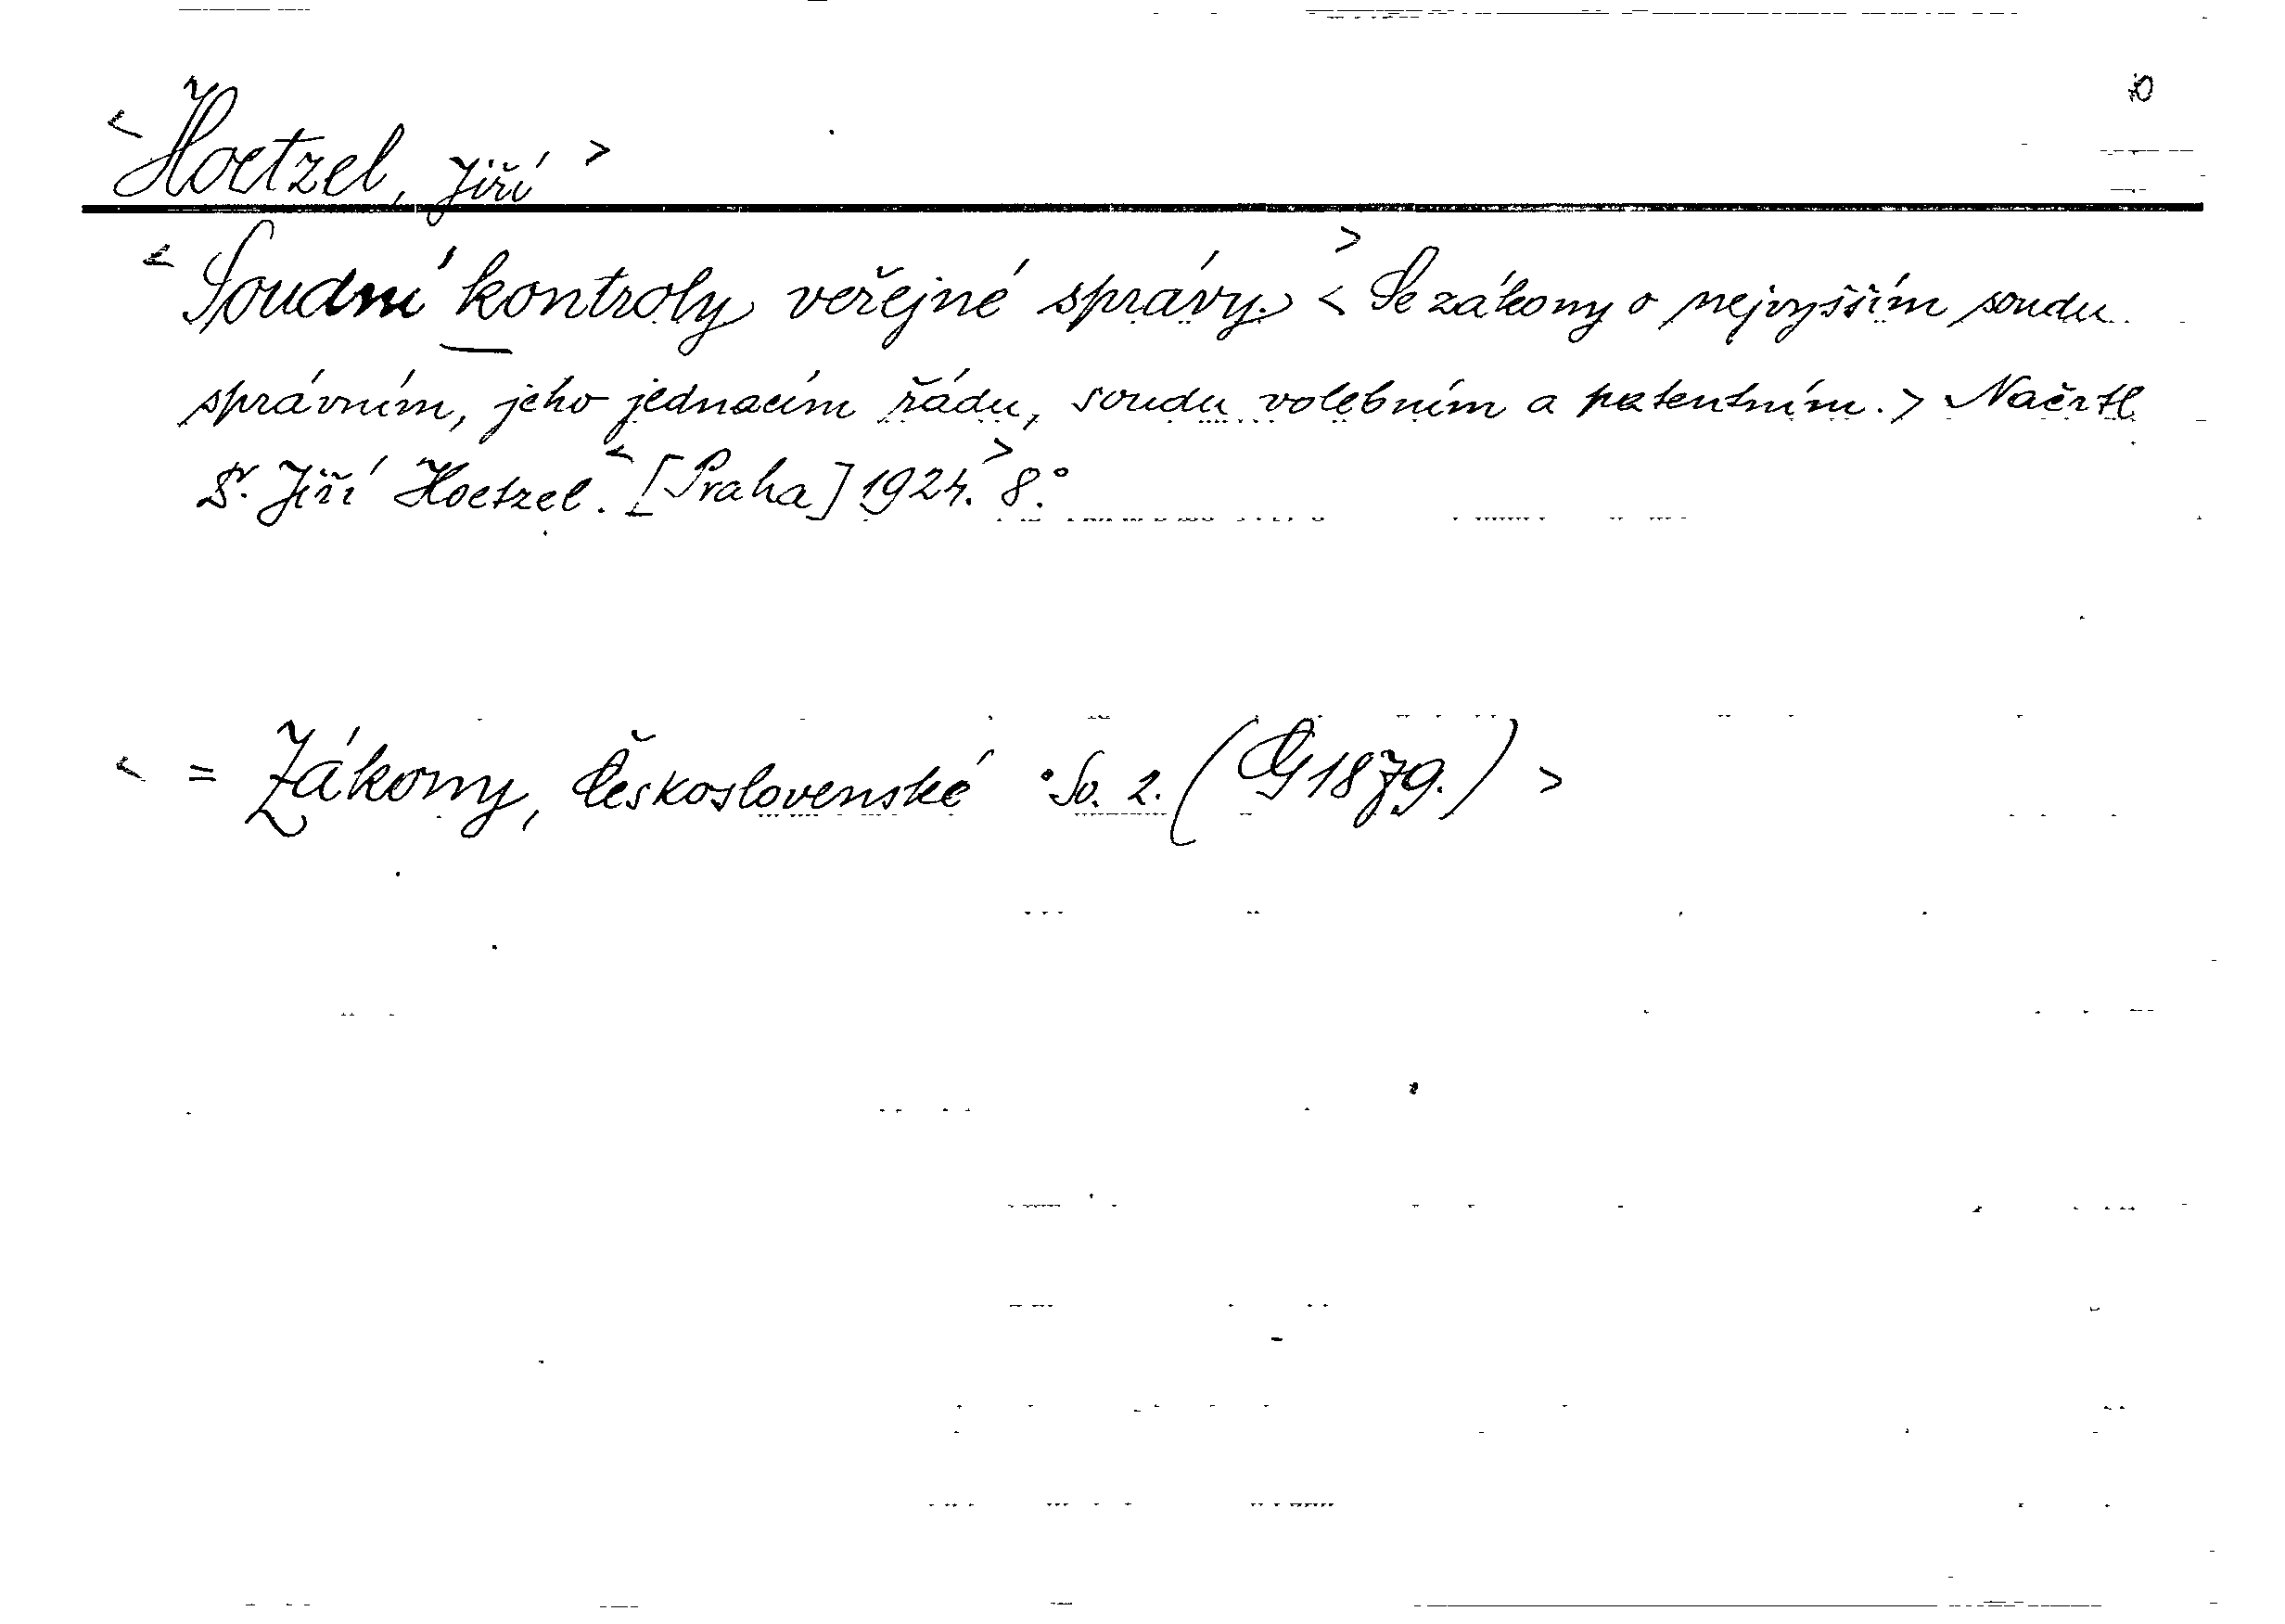 < Hoetzel, Jiří >
< Soudní kontroly veřejné správy. > < Se zákony o nejvyšším soudu
správním, jeho jednacím řádu, soudu volebním a patentním. > Načrtl
Dr. Jiří Hoetzel. < [Praha] 1924. > 8.°
< = Zákony, Československé So. 2. (G 1879.) >